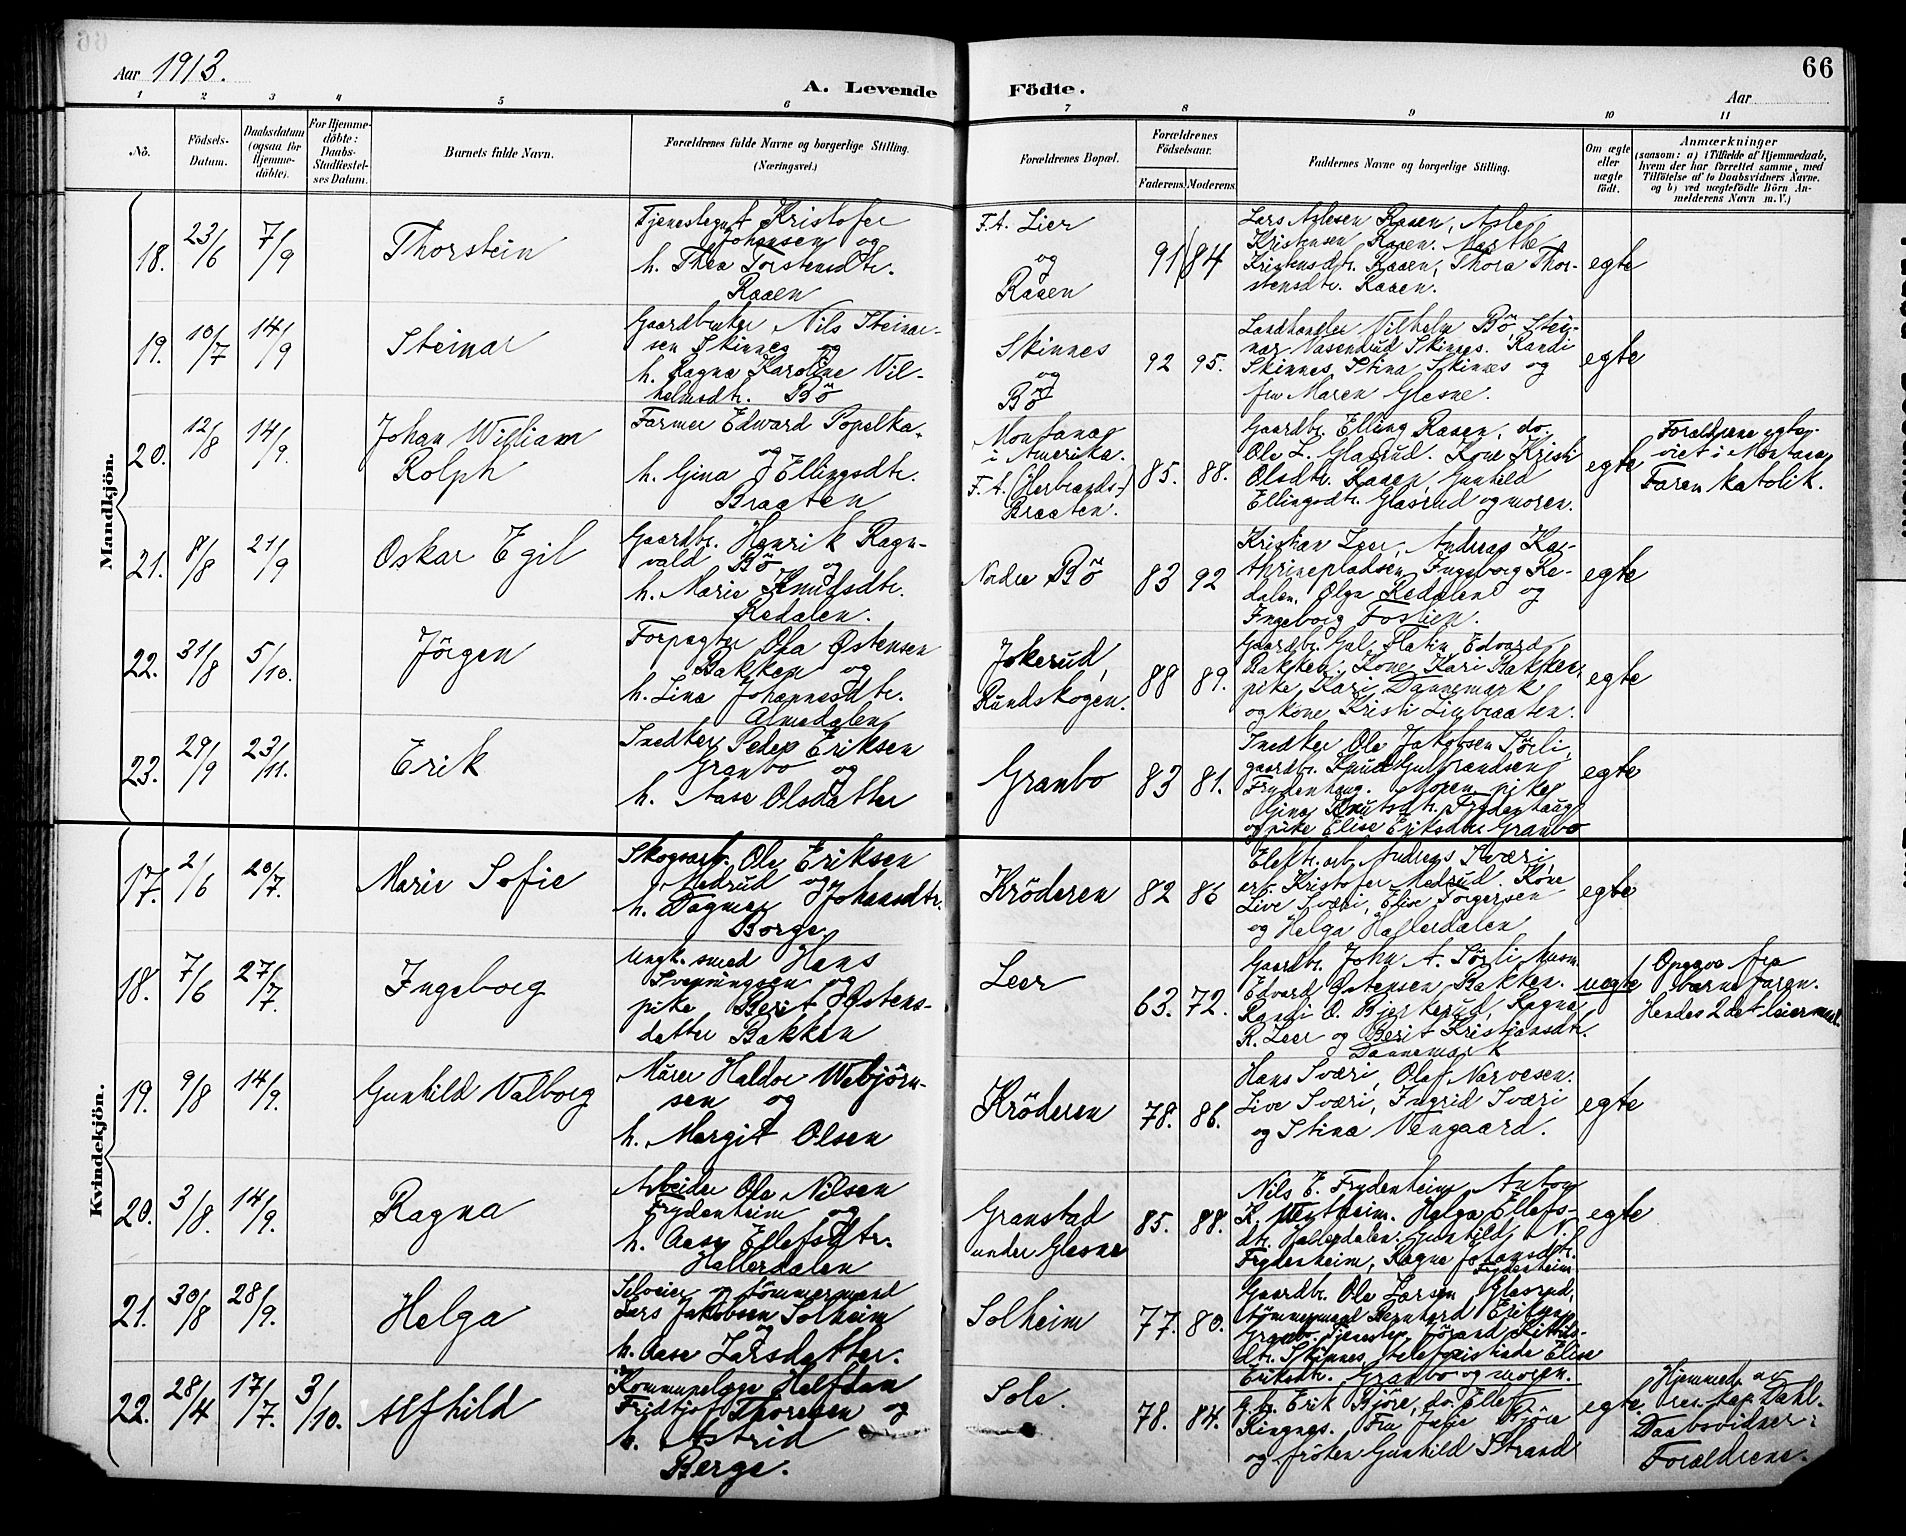 66
Aar 1913.
A. Levende Födte.
Aar
1 2 3 4 5 6 7 8 9 10 11
No.
Födsels-Datum.
Daabsdatum (ogsaa for Hjemmedöbte).
For Hjemmedöbte: Daabs-Stadfæstelses Datum.
Barnets fulde Navn.
Forældrenes fulde Navne og borgerlige Stilling.
(Næringsvei.)
Forældrenes Bopæl.
Forældrenes Födselsaar.
Faderens. Moderens.
Faddernes Navne og borgerlige Stilling.
Om ægte eller uægte født.
Anmærkninger
(saasom: a) i Tilfælde af Hjemmedaab, hvem der har forrettet samme, med Tilföielse af to Daabsvidners Navne. og b) ved uægtefödte Börn Anmelderens Navn m. V.)
Mandkjön.
18. 23/6 7/9
Thorstein
Tjenestegut Kristofer
Johansen og
h. Thea Torstensdtr.
Raaen
F. A. Lier
og
Raaen
91/84
Lars Aslesen Raaen, Asle
Kristensen Raaen. Marthe
Kristensdtr. Raaen, Thora Thor-
stensdtr. Raaen.
egte
19. 10/7 14/9
Steinar
Gaardbruker Nils Steinar-
sen Skinnes og
h. Ragna Karoline Vil-
helmsdtr. Bö
Skinnes
og
Bö
92 95.
Landhandler Vilhelm Bö Stei-
nar Vasendrud Skinnes. Randi
Skinnes, Stina Skinnes og
fru Maren Glesne.
egte
20. 12/8 14/9.
Johan William
Rolph
Farmer Edward Popelka
og
h. Gina Ellingsdtr.
Braaten
Montana
i Amerika.
F. A. (Herbrands-)
Braaten.
85. 88.
Gaardbr. Elling Raaen, do.
Ole L. Glasrud. Kone Kristi
Olsdtr. Raaen, Gunhild
Ellingsdtr. Glasrud og moren.
egte
Forældrene egte-
viet i Montana,
Faren katolik.
21. 8/8 21/9
Oskar Egil
Gaardbr. Henrik Ragn-
vald Bö og
h. Marie Knutsdtr.
Redalen.
Nordre Bö
83 92
Kristian Leer, Andreas Ka-
thrinepladsen, Ingeborg Re-
dalen, Olga Redalen og
Ingeborg Foslien.
egte
22. 31/8 5/10.
Jörgen
Forpagter Ola Østensen
Bakken og
h. Lina Johannesdtr.
Almedalen
Jokerud,
Rundskogen.
88 89.
Gaardbr. Gul. Slatin, Edvard
Bakken, Kone Kari Bakken,
pike Kari Dannemark
og kone Kristi Liebraaten.
egte
23. 29/9 23/11.
Erik
Snedker Peder Eriksen
Granbo og
h. Aase Olsdatter
Granbo
83 81.
Snedker Ole Jakobsen Sørli,
gaardbr. Knud Gulbrandsen
Frydenhaug. Moren, pike
Gina Knutsdtr. Frydenhaug
og pike Elise Eriksdtr. Granbo
egte
Kvindekjön.
17. 2/6 20/7.
Marie Sofie
Skogsarb. Ole Eriksen
Medrud og
h. Dagmar Johansdtr.
Borge.
Kröderen
82 86
Elektr.arb. Andreas Sværi,
arb. Kristofer Medrud. Kone
Live Sværi, Elise Torgersen
og Helga Hallerdalen
egte
18. 7/6 27/7.
Ingeborg
Ungk. smed Hans
Svenningsen og
pike Berit Østens-
datter Bakken
Leer
63. 72.
Gaardbr. John A. Sørli,
Edvard Østensen Bakken.
Randi O. Bjerkerud, Ragna
R. Leer og Berit Kristiansdtr.
Dannemark
uegte
Opgave fra
barnefaren.
Hendes 2det leiermaal
19. 9/8 14/9.
Gunhild Valborg
Murer Haldor Webjörn-
sen og
h. Margit Olsen
Kröderen
78. 86.
Hans Sværi, Olaf Narvesen.
Live Sværi, Ingrid Sværi
og Stina Vengaard.
egte
20. 3/8. 14/9.
Ragna
Arbeider Ole Nilsen
Frydenheim og
h. Aase Ellefsdtr.
Hallerdalen
Granstad
under Glesne
85. 88.
Nils E. Frydenheim, Anton
K. Myrheim. Helga Ellefs-
dtr. Hallerdalen. Gunhild N.
Frydenheim, Ragna Johansdtr.
Frydenheim
egte
21. 30/8 28/9.
Helga
Selveier og tömmermand
Lars Jakobsen Solheim
og
h. Aase Larsdatter.
Solheim
77. 80.
Gaardbr. Ole Larsen Glasrud,
tömmermand Bernhard Eriksen
Granbo. Tjenestep. Jörand Kittils-
dtr. Skinnes, telefonistinde Elise
Eriksdtr. Granbo og moren.
22. 28/4 17/7. 3/10.
Alfhild
Kommunelæge Halfdan
Fridtjof Thoresen og
h. Astrid
Berge.
Sole.
78. 84.
G.br. Erik Björe, do. Ellef
Ringnes. Fru Julie Björe
og fröken Gunhild Strand
egte.
Hjemmed. av
res. kap. Dahl.
Daabsvidner:
Forældrene.